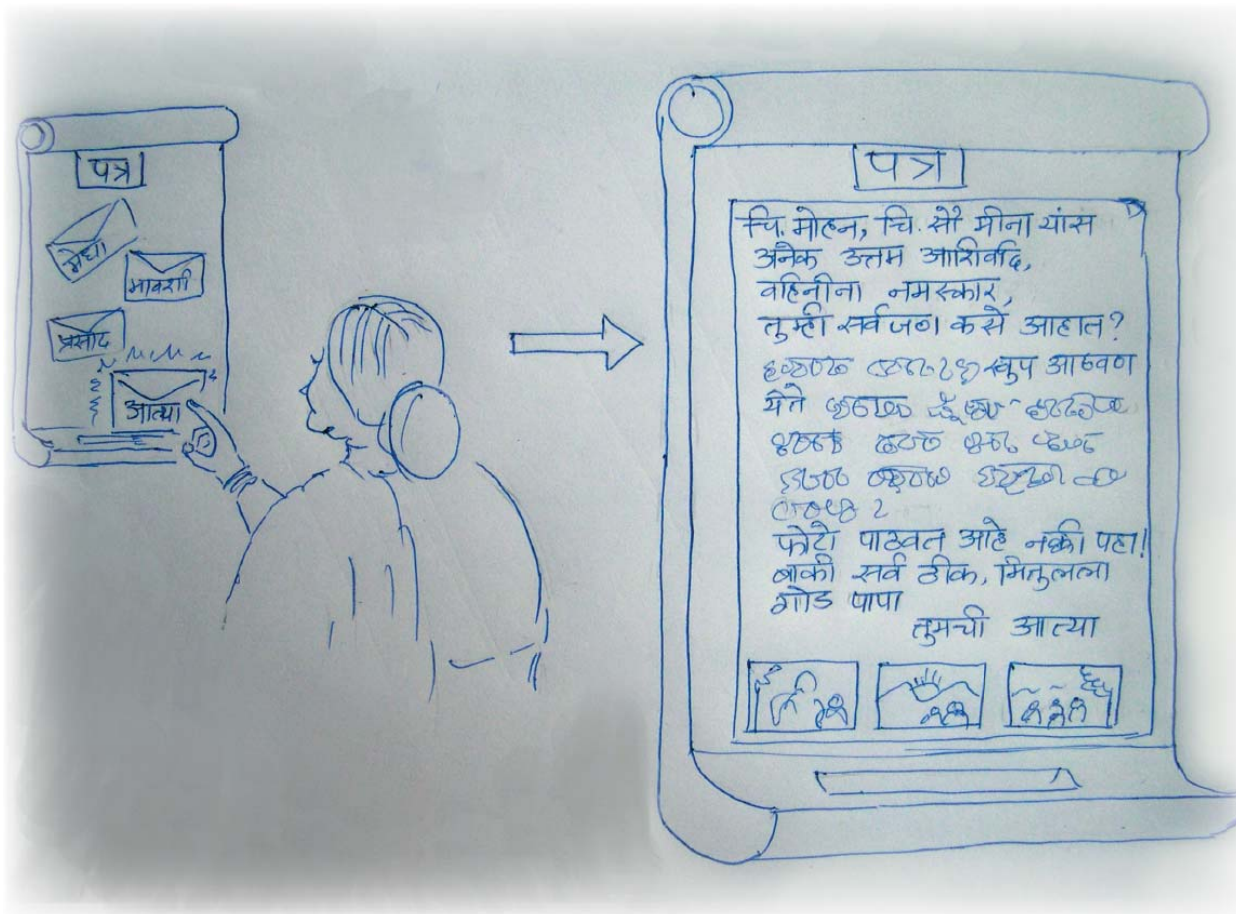 पत्र
मेधा
मावशी
प्रसाद
आत्या
पत्र
चि. मोहन, चि. सौ मीना यांस
अनेक उत्तम आशिर्वाद,
वहिनीना नमस्कार,
तुम्ही सर्वजण कसे आहात?
खुप आठवण
येते
फोटो पाठवत आहे नक्की पहा!
बाकी सर्व ठीक, मितुलला
गोड पापा
तुमची आत्या